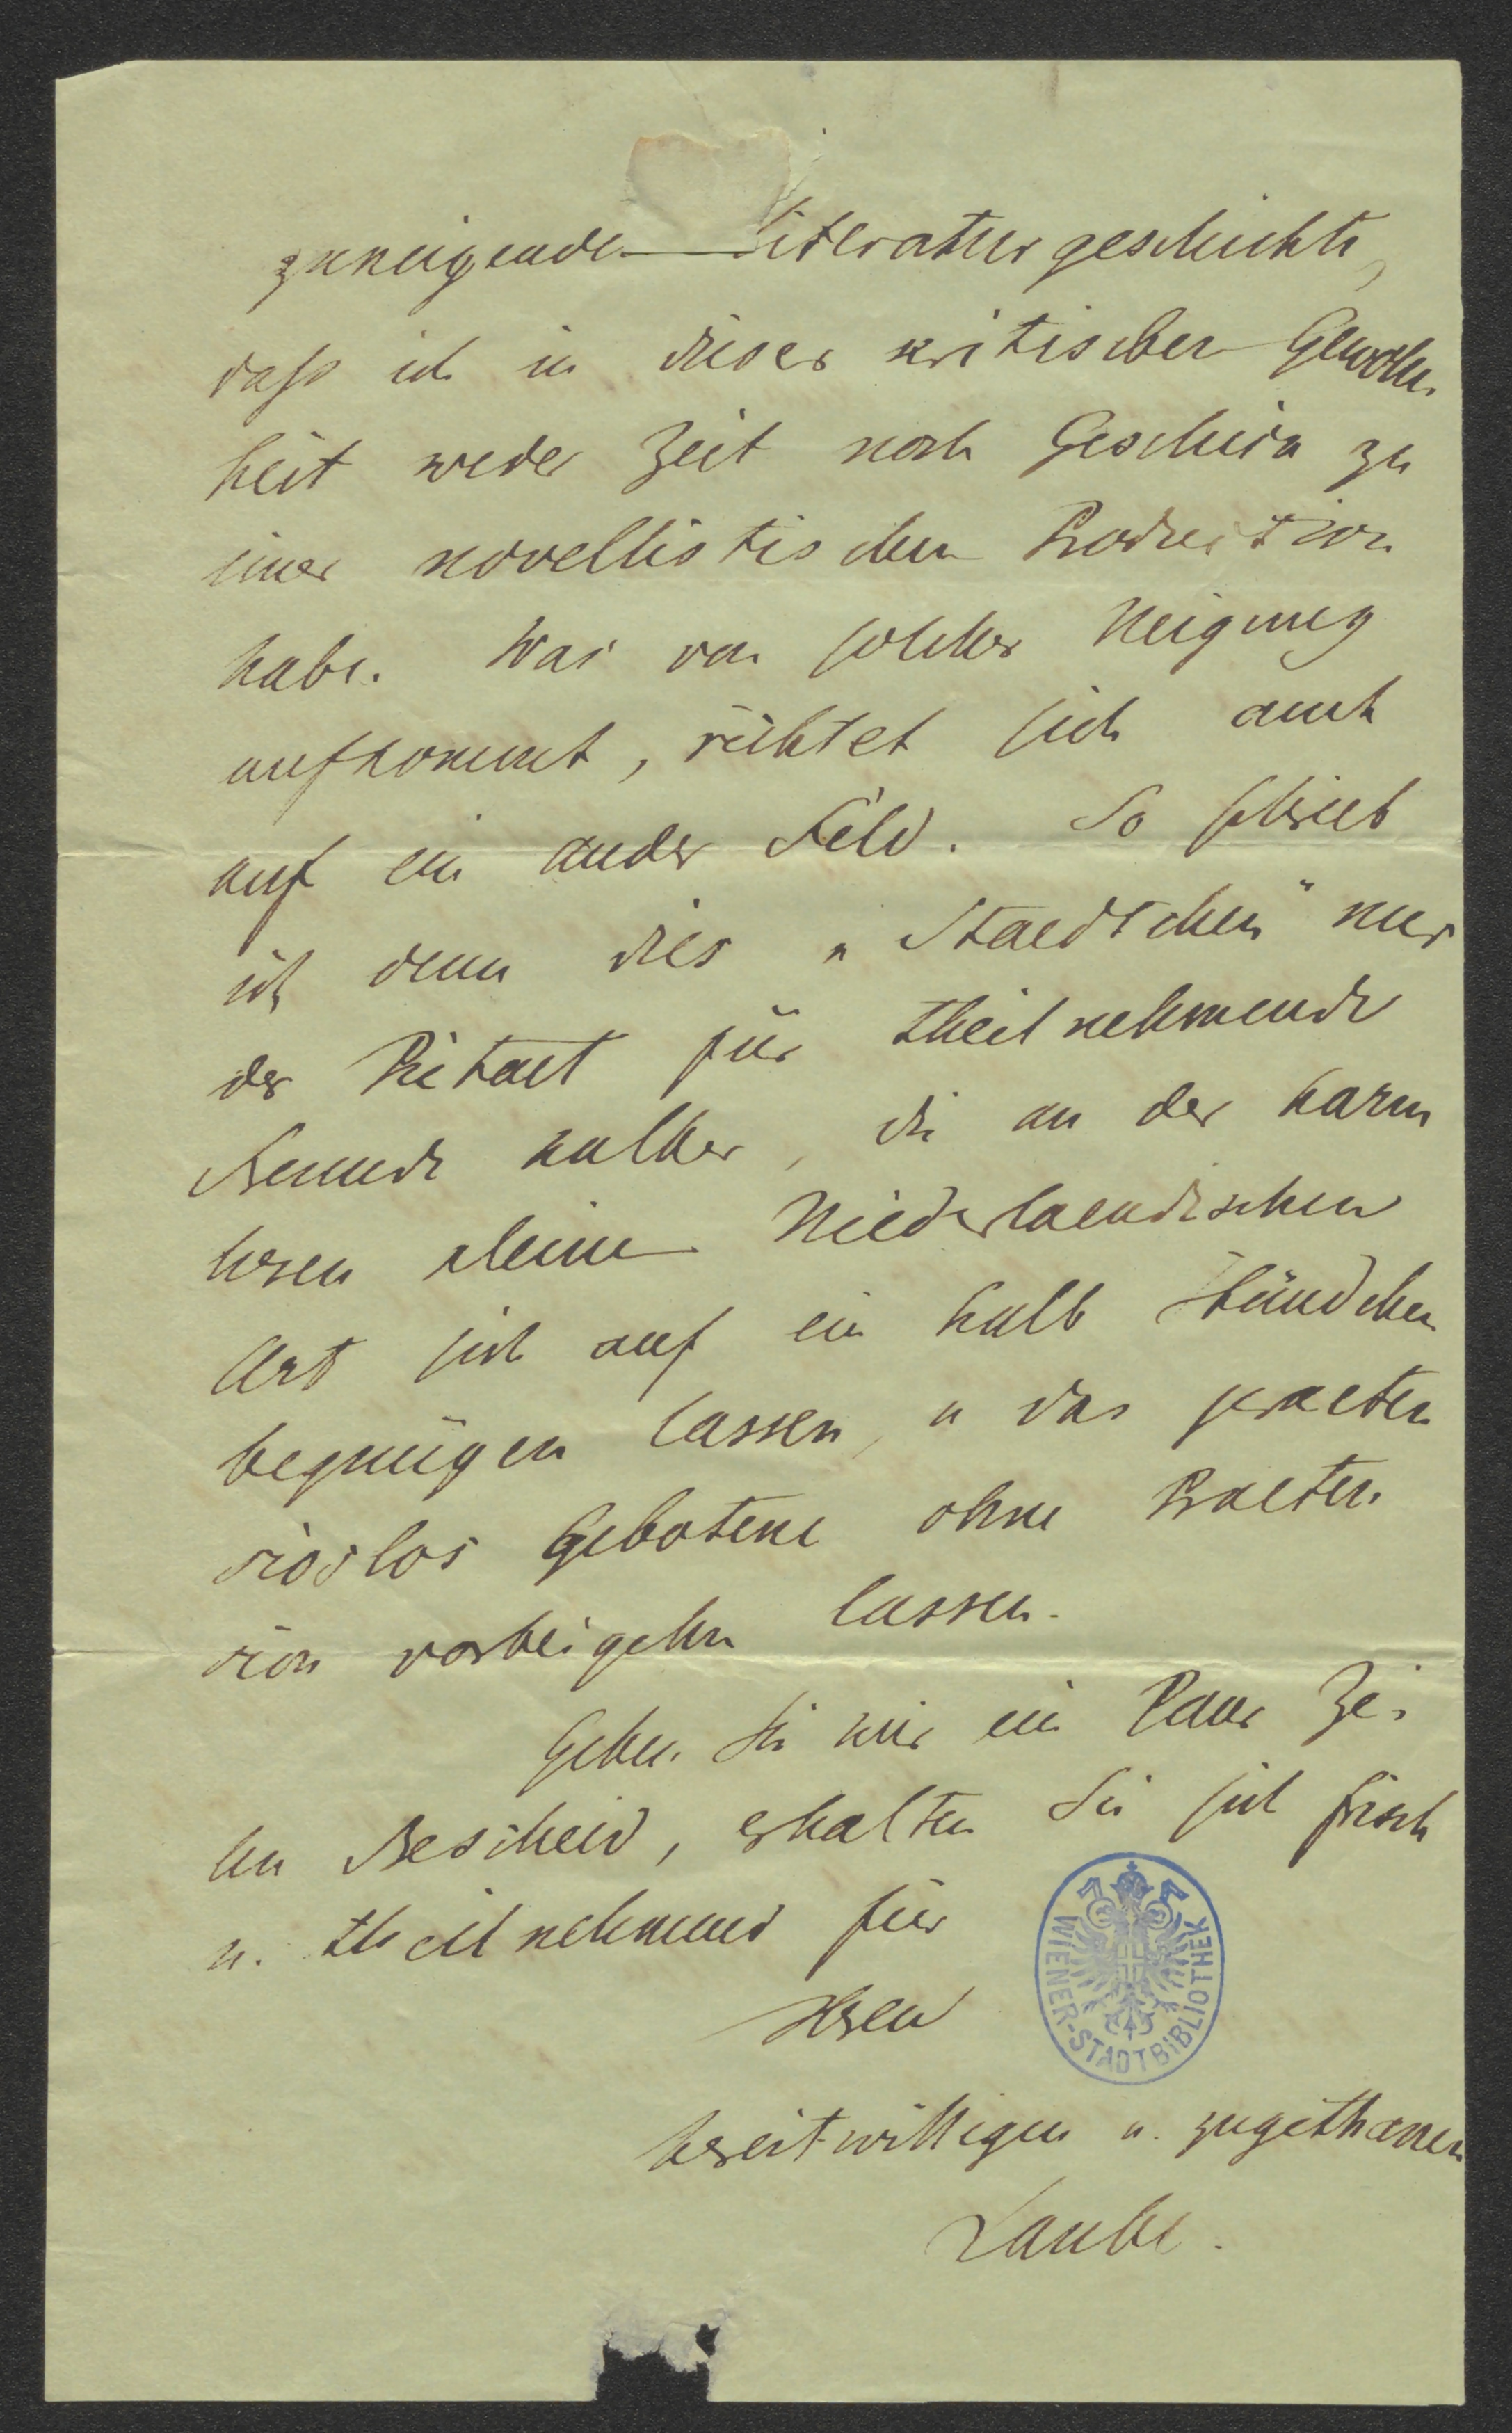 zuneigende Literaturgeschichte,
daß ich in dieser kritischen Gewohn
heit weder Zeit noch Geschick zu
einer novellistischen Production
habe. Was von solcher Neigung
aufkommt, richtet sich auch
auf ein ander Feld. So schrieb
ich denn dies „Staedtchen" nur
der Pietaet für theilnehmende
Freunde halber, die an der harm
losen kleinen Niederlaendischen
Art sich auf ein halb Stündchen
begnügen lassen, u das praeten
sioslos Gebotene ohne Praeten
sion vorbeigehn lassen.
Geben Sie mir ein Paar Zei
len Bescheid, erhalten Sie sich frisch
u. theilnehmend für
Ihren
bereitwilligen u. zugethanen
Laube.
WIENER-STADTBIBLIOTHEK